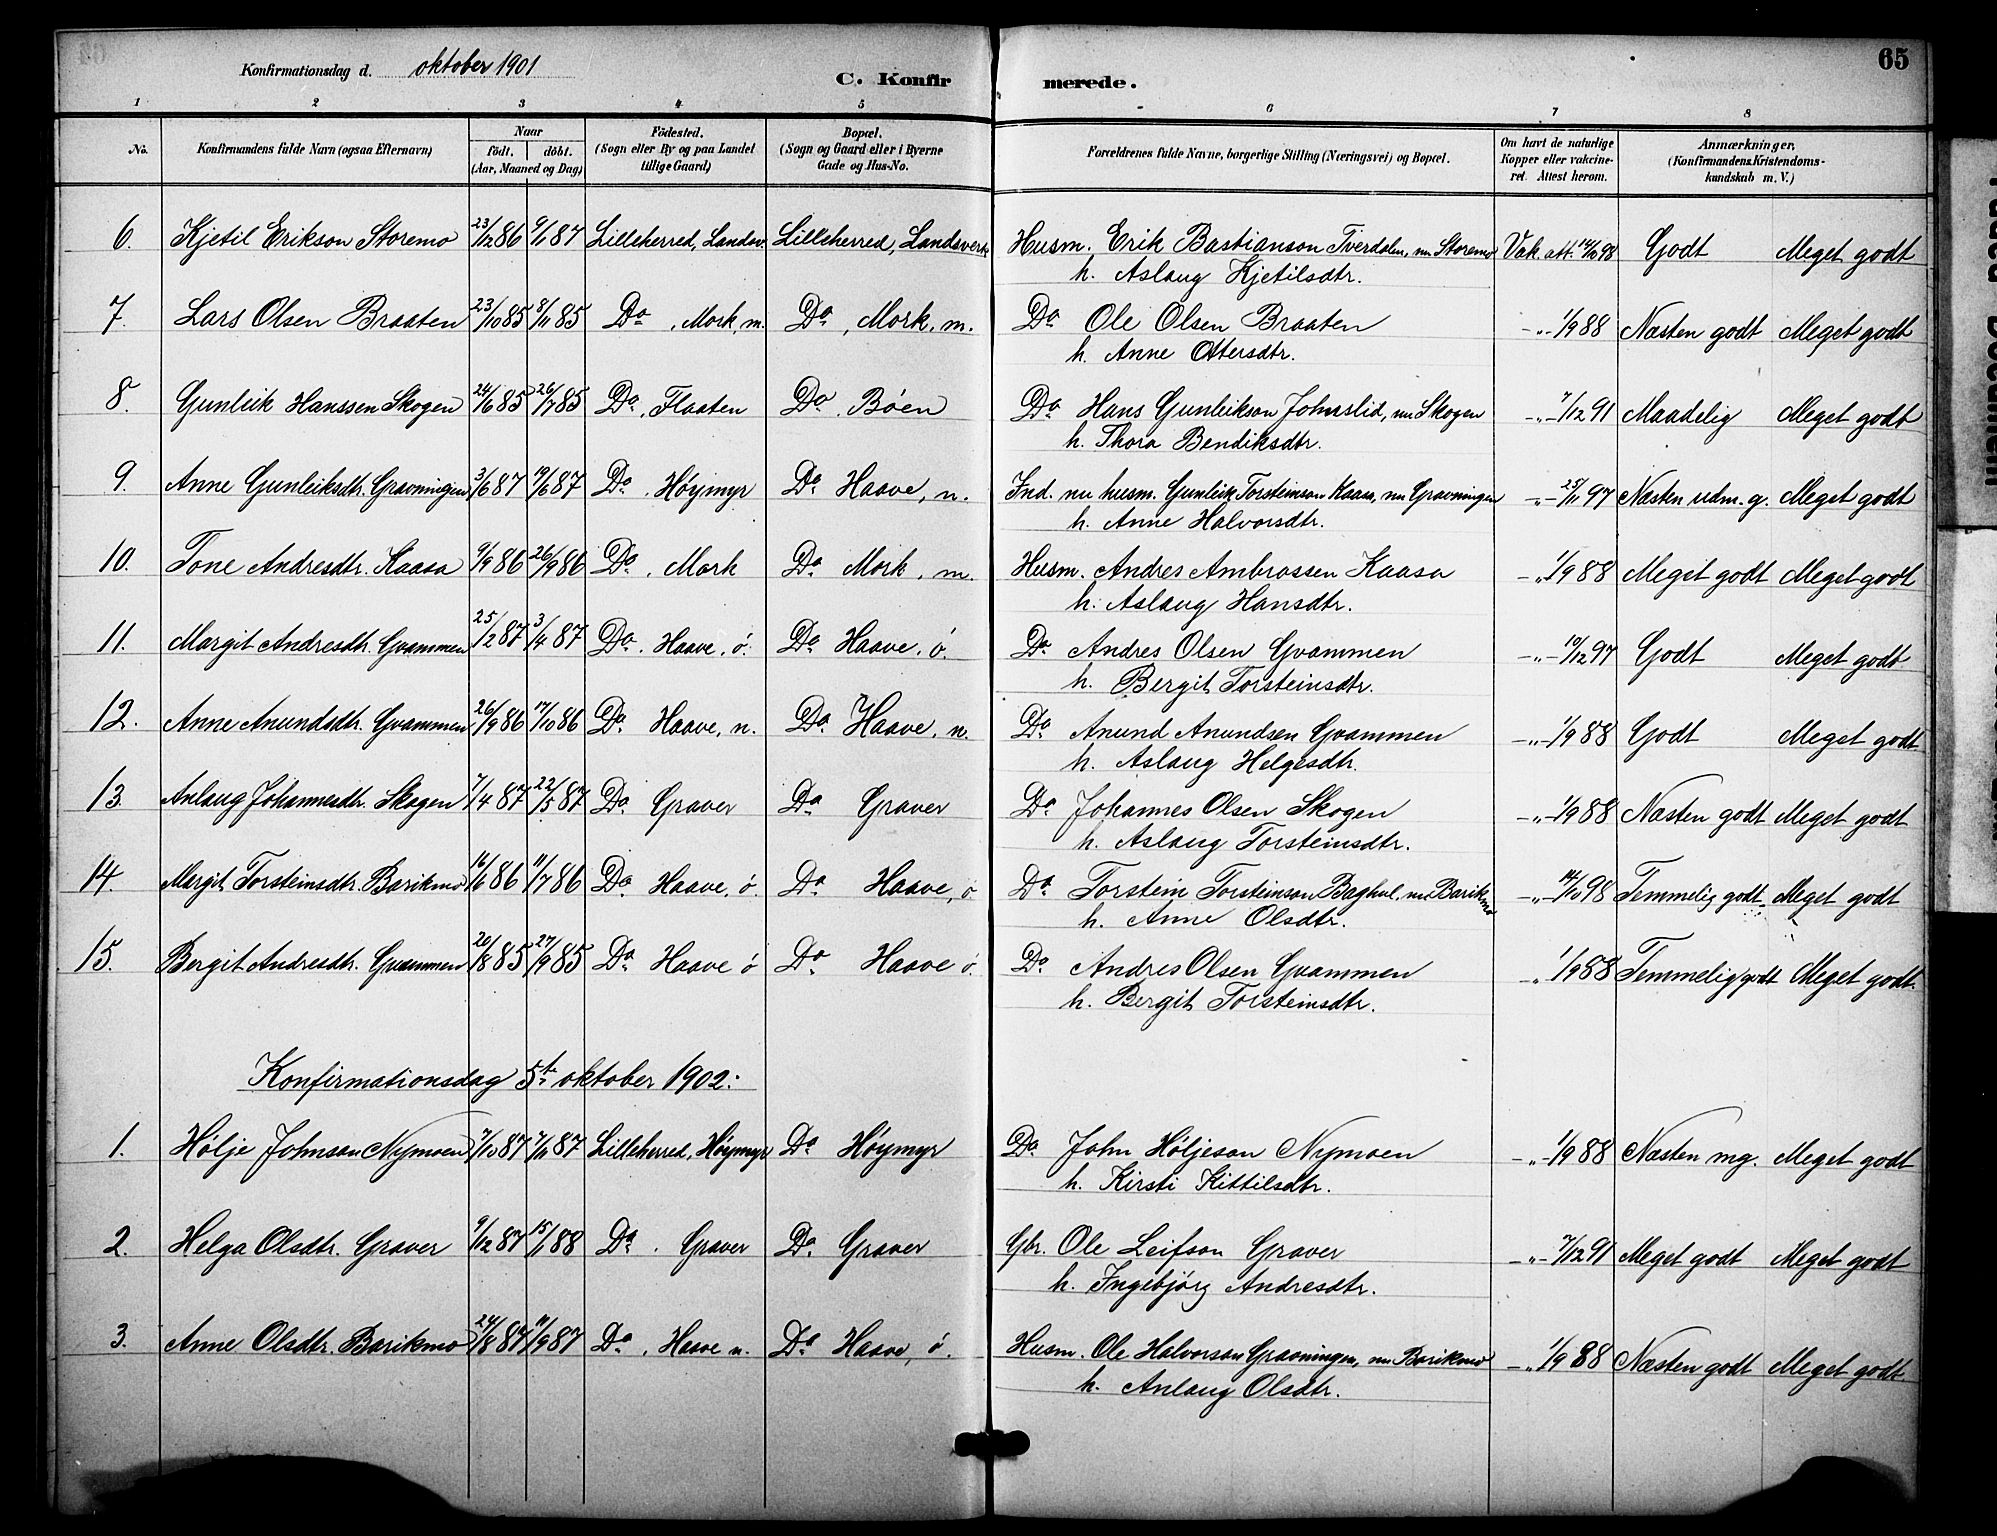 65
Konfirmationsdag d. oktober 1901
C. Konfirmerede.
1 2 3 4 5 6 7 8
No. Konfirmandens fulde Navn (ogsaa Efternavn) Naar født. døbt. (Aar, Maaned og Dag) Fødested. (Sogn eller By og paa Landet tillige Gaard) Bopæl. (Sogn og Gaard eller i Byerne Gade og Hus-No. Forældrenes fulde Navne, borgerlige Stilling (Næringsvei) og Bopæl. Om havt de naturlige Kopper eller vakcineret. Attest herom. Anmærkninger. (Konfirmandens Kristendomskundskab m. V.)
6. Kjetil Erikson Storemo 23/12 86 9/1 87 Lilleherred, Landsv. Lilleherred, Landsverk Husm. Erik Bastianson Tverdalen, nu Storemo Vak. att. 14/10 98 Godt Meget godt
h. Aslaug Kjetilsdtr.
7. Lars Olsen Braaten 23/10 85 8/11 85 Do , Mork, m. Do , Mork, m. Do Ole Olsen Braaten -"- 1/9 88 Næsten godt Meget godt
h. Anne Ottersdtr.
8. Gunleik Hanssen Skogen 24/6 85 26/7 85 Do , Flaaten Do , Bøen Do Hans Gunleikson Johnslid, nu Skogen -"- 7/12 91 Maadelig Meget godt
h. Thora Bendiksdtr.
9. Anne Gunleiksdtr. Gravningen 3/6 87 19/6 87 Do , Høymyr Do Haave, n. Ind. nu husm. Gunleik Torsteinson Kaasa, nu Gravningen -"- 25/11 97 Næsten udm. g. Meget godt
h. Anne Halvorsdtr.
10. Tone Andresdtr. Kaasa 9/9 86 26/9 86 Do , Mork Do Mork, m. Husm. Andres Ambrossen Kaasa -"- 1/9 88 Meget godt Meget godt
h. Aslaug Hansdtr.
11. Margit Andresdtr. Gvammen 25/12 87 3/4 87 Do , Haave, ø. Do Haave, ø. Do Andres Olsen Gvammen -"- 10/12 97 Godt Meget godt
h. Bergit Torsteinsdtr.
12. Anne Anundsdtr. Gvammen 26/9 86 17/10 86 Do Haave, n. Do Haave, n. Do Anund Anundsen Gvammen -"- 1/9 88 Godt Meget godt
h. Aslaug Helgesdtr.
13. Anlaug Johannesdtr. Skogen 7/4 87 22/5 87 Do Graver Do Graver Do Johannes Olsen Skogen -"- 1/9 88 Næsten godt Meget godt
h. Aslaug Torsteinsdtr.
14. Margit Torsteinsdtr. Barikmo 16/6 86 11/7 86 Do Haave, ø. Do Haave, ø. Do Torstein Torsteinson Baghul, nu Barikmo -"- 14/10 98 Temmelig godt Meget godt
h. Anne Olsdtr.
15. Bergit Andresdtr. Gvammen 20/8 85 27/9 85 Do Haave ø Do Haave ø. Do Andres Olsen Gvammen -"- 1/9 88 Temmelig godt Meget godt.
h. Bergit Torsteinsdtr.
Konfirmationsdag 5te oktober 1902:
1. Hølje Johnson Nymoen 7/10 87 7/11 87 Lilleherred, Høymyr Do Høymyr Do John Høljeson Nymoen -"- 1/9 88 Næsten mg. Meget godt
h. Kirsti Kittilsdtr.
2. Helga Olsdtr. Graver 9/12 87 15/1 88 Do , Graver Do Graver Gbr. Ole Leifson Graver -"- 7/12 91 Meget godt Meget godt
h. Ingebjørg Andresdtr.
3. Anne Olsdtr. Barikmo 24/8 87 11/9 87 Do , Haave n. Do Haave, ø. Husm. Ole Halvorson Gravningen, nu Barikmo -"- 1/9 88 Næsten godt Meget godt
h. Anlaug Olsdtr.